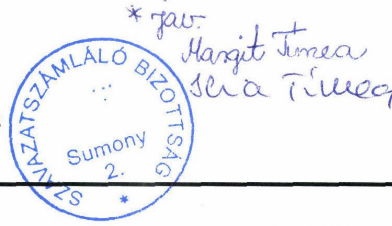 * jav.
Margit Tímea
Tímea
SZAVAZATSZÁMLÁLÓ BIZOTTSÁG
Sumony
2.
*